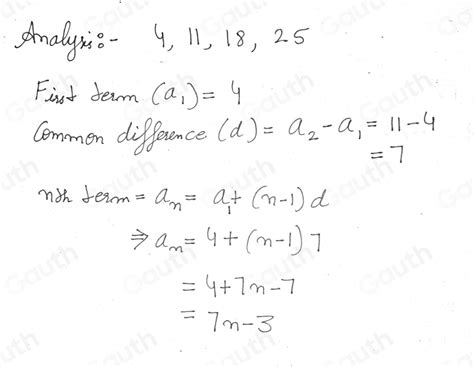 Analysis:- 4, 11, 18, 25
First term (a₁) = 4
Common difference (d) = a₂ - a₁ = 11 - 4
= 7
nth term = aₙ = a₁ + (n-1) d
⇒ aₙ = 4 + (n-1) 7
= 4 + 7n - 7
= 7n - 3
Gauth